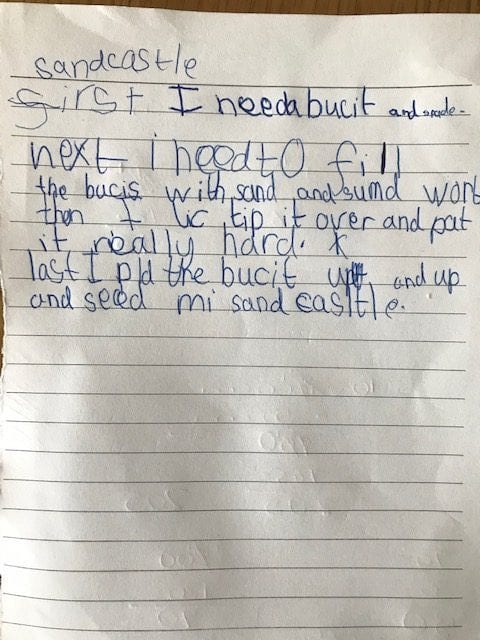 sandcastle
first I needabucit and spade.
next i need to fill
the bucis with sand and sumd wort
then I tip it over and pat
it really hard.
last I pld the bucit up and up
and seed mi sand castle.